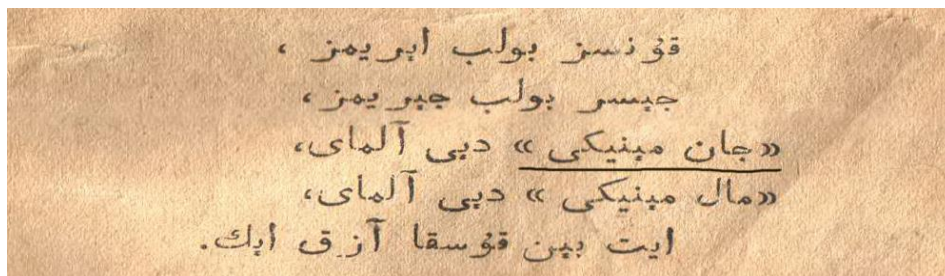 قۇنسز بولب ابريمز ،
جبسر بولب جبر يمز،
«جان مبنيكى » دبى آلماى،
«مال مبنيكى » دبى آلماى،
ايت بېن قۇسقا آزق ابك.